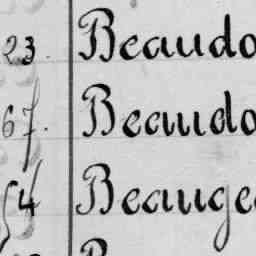 23. Beaudo
67. Beaudo
54 Beauge